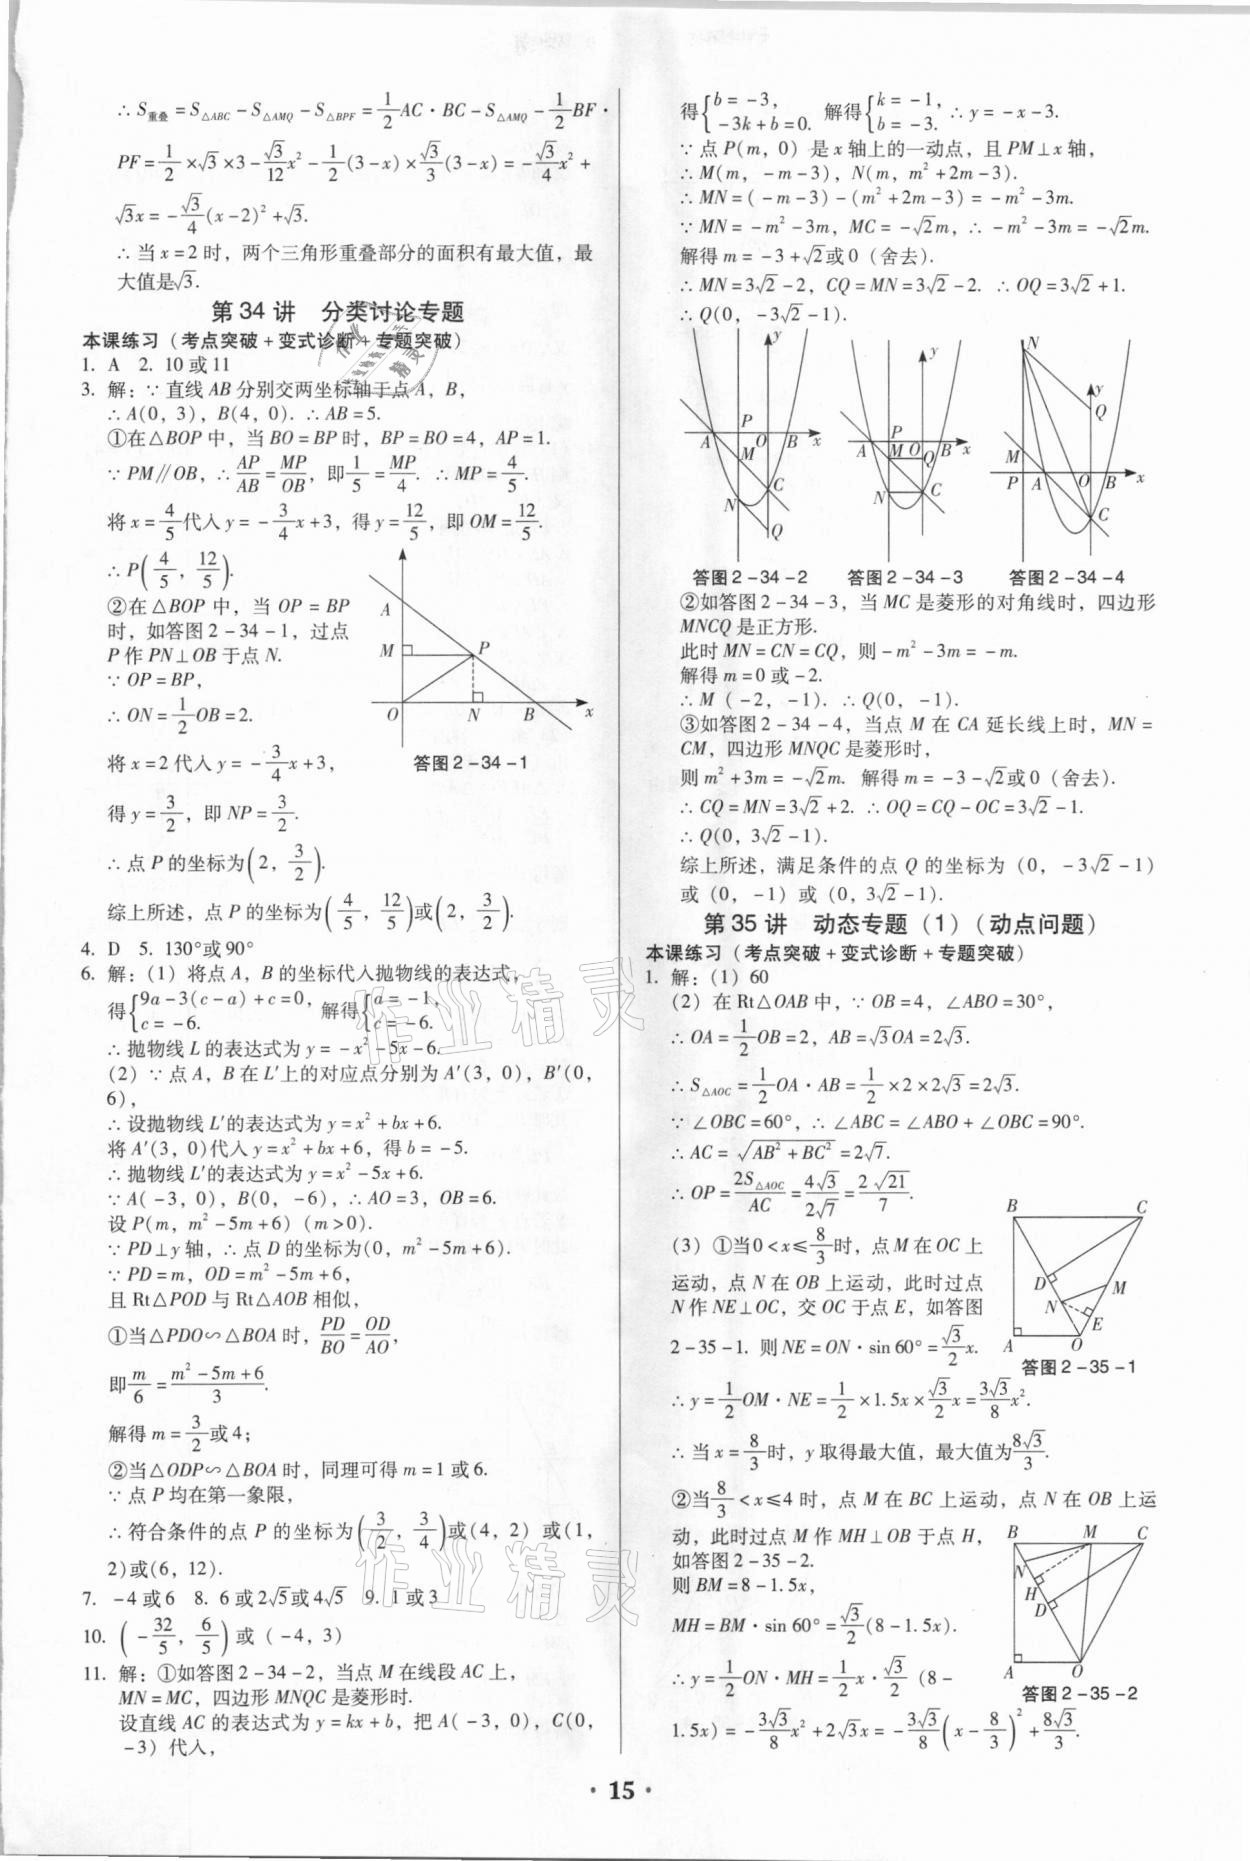 ∴ S重叠 = S△ABC - S△AMQ - S△BPF = 1/2 AC · BC - S△AMQ - 1/2 BF ·
PF = 1/2 × √3 × 3 - √3/12 x² - 1/2 (3 - x) × √3/3 (3 - x) = - √3/4 x² +
√3x = - √3/4 (x - 2)² + √3.
∴ 当 x = 2 时，两个三角形重叠部分的面积有最大值，最
大值是√3.
第 34 讲 分类讨论专题
本课练习（考点突破 + 变式诊断 + 专题突破）
1. A 2. 10 或 11
3. 解：∵ 直线 AB 分别交两坐标轴于点 A，B，
∴ A(0，3)，B(4，0). ∴ AB = 5.
①在△BOP 中，当 BO = BP 时，BP = BO = 4，AP = 1.
∵ PM∥OB，∴ AP/AB = MP/OB，即 1/5 = MP/4. ∴ MP = 4/5.
将 x = 4/5 代入 y = - 3/4 x + 3，得 y = 12/5，即 OM = 12/5.
∴ P(4/5，12/5).
②在△BOP 中，当 OP = BP
时，如答图 2 - 34 - 1，过点
P 作 PN⊥OB 于点 N.
∵ OP = BP，
∴ ON = 1/2 OB = 2.
将 x = 2 代入 y = - 3/4 x + 3，
得 y = 3/2，即 NP = 3/2.
A
M
P
O
N
B
x
答图 2 - 34 - 1
∴ 点 P 的坐标为(2，3/2).
综上所述，点 P 的坐标为(4/5，12/5)或(2，3/2).
4. D 5. 130°或 90°
6. 解：(1) 将点 A，B 的坐标代入抛物线的表达式，
得{9a - 3(c - a) + c = 0, c = -6. 解得{a = -1, c = -6.
∴ 抛物线 L 的表达式为 y = - x² - 5x - 6.
(2) ∵ 点 A，B 在 L′上的对应点分别为 A′(3，0)，B′(0，
6)，
∴ 设抛物线 L′的表达式为 y = x² + bx + 6.
将 A′(3，0)代入 y = x² + bx + 6，得 b = -5.
∴ 抛物线 L′的表达式为 y = x² - 5x + 6.
∵ A( -3，0)，B(0， -6)，∴ AO = 3，OB = 6.
设 P(m，m² - 5m + 6) (m > 0).
∵ PD⊥y 轴，∴ 点 D 的坐标为(0，m² - 5m + 6).
∵ PD = m，OD = m² - 5m + 6，
且 Rt△POD 与 Rt△AOB 相似，
①当△PDO∽△BOA 时，PD/BO = OD/AO，
即 m/6 = (m² - 5m + 6)/3.
解得 m = 3/2 或 4；
②当△ODP∽△BOA 时，同理可得 m = 1 或 6.
∵ 点 P 均在第一象限，
∴ 符合条件的点 P 的坐标为(3/2，3/4)或(4，2) 或(1，
2)或(6，12).
7. -4 或 6 8. 6 或 2√5 或 4√5 9. 1 或 3
10. ( -32/5，6/5) 或 ( -4，3)
11. 解：①如答图 2 - 34 - 2，当点 M 在线段 AC 上，
MN = MC，四边形 MNQC 是菱形时.
设直线 AC 的表达式为 y = kx + b，把 A( -3，0)，C(0，
-3) 代入，
得{b = -3, -3k + b = 0. 解得{k = -1, b = -3. ∴ y = - x - 3.
∵ 点 P(m，0) 是 x 轴上的一动点，且 PM⊥x 轴，
∴ M(m， - m - 3)，N(m，m² + 2m - 3).
∴ MN = ( - m - 3) - (m² + 2m - 3) = - m² - 3m.
∵ MN = - m² - 3m，MC = - √2m，∴ - m² - 3m = - √2m.
解得 m = - 3 + √2 或 0 (舍去).
∴ MN = 3√2 - 2，CQ = MN = 3√2 - 2. ∴ OQ = 3√2 + 1.
∴ Q(0， - 3√2 - 1).
y
P
A
O
B
x
M
C
N
Q
答图 2 - 34 - 2
y
P
A
M
O
B
x
Q
N
C
答图 2 - 34 - 3
N
y
Q
M
P
A
O
B
x
C
答图 2 - 34 - 4
②如答图 2 - 34 - 3，当 MC 是菱形的对角线时，四边形
MNCQ 是正方形.
此时 MN = CN = CQ，则 - m² - 3m = - m.
解得 m = 0 或 -2.
∴ M ( -2， -1). ∴ Q(0， -1).
③如答图 2 - 34 - 4，当点 M 在 CA 延长线上时，MN =
CM，四边形 MNQC 是菱形时，
则 m² + 3m = - √2m. 解得 m = - 3 - √2 或 0 (舍去).
∴ CQ = MN = 3√2 + 2. ∴ OQ = CQ - OC = 3√2 - 1.
∴ Q(0，3√2 - 1).
综上所述，满足条件的点 Q 的坐标为 (0， - 3√2 - 1)
或 (0， -1) 或 (0，3√2 - 1).
第 35 讲 动态专题（1）（动点问题）
本课练习（考点突破 + 变式诊断 + 专题突破）
1. 解：(1) 60
(2) 在 Rt△OAB 中，∵ OB = 4，∠ABO = 30°，
∴ OA = 1/2 OB = 2，AB = √3 OA = 2√3.
∴ S△AOC = 1/2 OA · AB = 1/2 × 2 × 2√3 = 2√3.
∵ ∠OBC = 60°，∴ ∠ABC = ∠ABO + ∠OBC = 90°.
∴ AC = √(AB² + BC²) = 2√7.
∴ OP = 2S△AOC/AC = 4√3/2√7 = 2√21/7.
(3) ①当 0 < x ≤ 8/3 时，点 M 在 OC 上
运动，点 N 在 OB 上运动，此时过点
N 作 NE⊥OC，交 OC 于点 E，如答图
2 - 35 - 1. 则 NE = ON · sin 60° = √3/2 x.
B
C
D
M
N
E
A
O
答图 2 - 35 - 1
∴ y = 1/2 OM · NE = 1/2 × 1.5x × √3/2 x = 3√3/8 x².
∴ 当 x = 8/3 时，y 取得最大值，最大值为 8√3/3.
②当 8/3 < x ≤ 4 时，点 M 在 BC 上运动，点 N 在 OB 上运
动，此时过点 M 作 MH⊥OB 于点 H，
如答图 2 - 35 - 2.
则 BM = 8 - 1.5x，
MH = BM · sin 60° = √3/2 (8 - 1.5x).
∴ y = 1/2 ON · MH = 1/2 x · √3/2 (8 -
B
M
C
N
H
D
A
O
答图 2 - 35 - 2
1.5x) = - 3√3/8 x² + 2√3x = - 3√3/8 (x - 8/3)² + 8√3/3.
· 15 ·
作业精灵
作业精灵